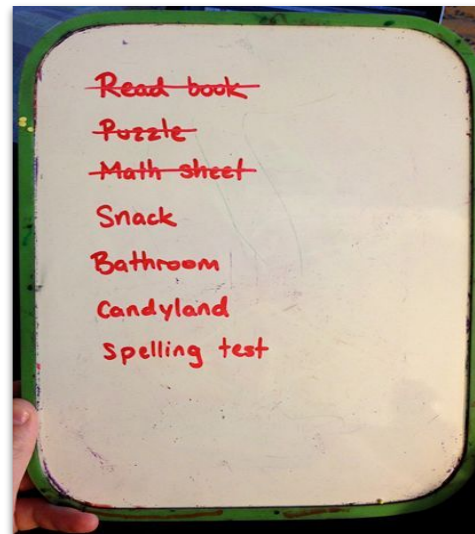 Read book
Puzzle
Math sheet
Snack
Bathroom
Candyland
Spelling test